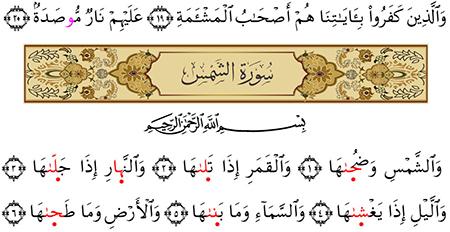 وَٱلَّذِينَ كَفَرُوا۟ بِـَٔايَـٰتِنَا هُمْ أَصْحَـٰبُ ٱلْمَشْـَٔمَةِ ﴿١٩﴾ عَلَيْهِمْ نَارٌ مُّوصَدَةٌۢ ﴿٢٠﴾
سُورَةُ الشَّمْسِ
بِسْمِ ٱللَّهِ ٱلرَّحْمَـٰنِ ٱلرَّحِيمِ
وَٱلشَّمْسِ وَضُحَىٰهَا ﴿١﴾ وَٱلْقَمَرِ إِذَا تَلَىٰهَا ﴿٢﴾ وَٱلنَّهَارِ إِذَا جَلَّىٰهَا ﴿٣﴾
وَٱلَّيْلِ إِذَا يَغْشَىٰهَا ﴿٤﴾ وَٱلسَّمَآءِ وَمَا بَنَىٰهَا ﴿٥﴾ وَٱلْأَرْضِ وَمَا طَحَىٰهَا ﴿٦﴾